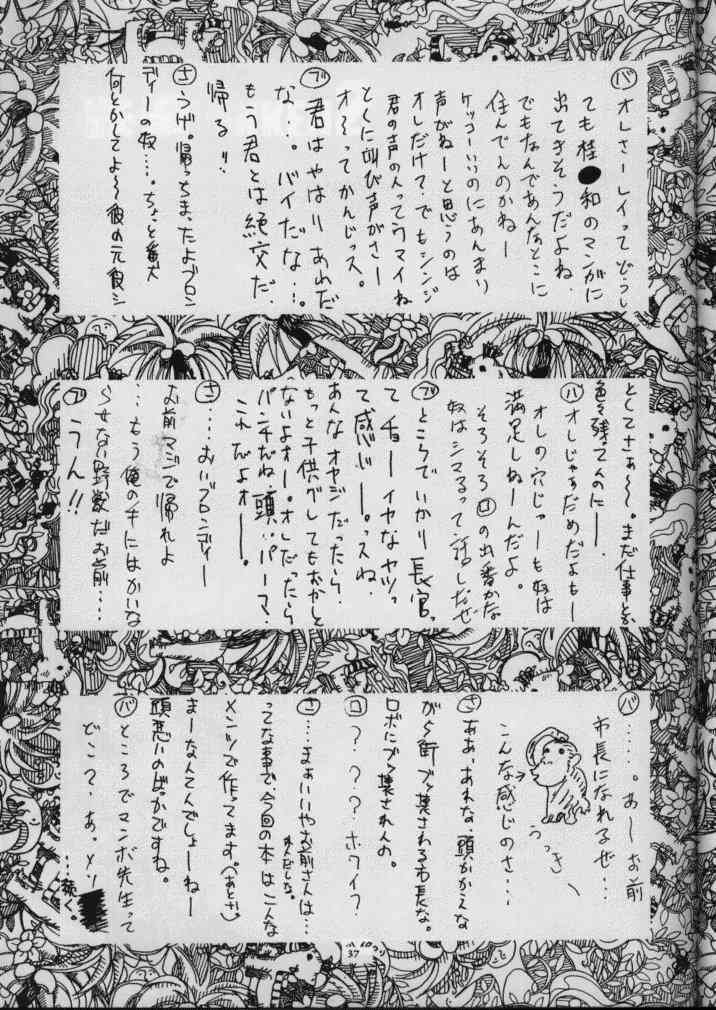 バ オレさーレイってどうし
ても桂●和のマンガに
出てきそうだよね。
でもなんであんなとこに
住んでんのかねー
ケッコーいいのにあんまり
声がねーと思うのは
オレだけ?でもシンジ
君の声の人ってウマイね
とくに叫び声がさー
オーってかんじっス。
ブ 君はやはりあれだ
な…。バイだな…!。
もう君とは絶交だ、
帰る!!
さ うげ。帰っちまったよブロン
ディーの奴…。ちょっと
何とかしてよ〜彼の元
としてさぁ〜。まだ仕事とか
色々残てんのにー、
バ オレじゃぁだめだよもー
オレの穴じゃーも奴は
満足しねーんだよ。
そろそろロの出番かな
奴はシマるって話しだぜ
ブ ところでいかり長官っ
てチョーイヤなヤツっ
て感じー。っスね。
あんなオヤジだったら
もっと子供グレてもおかしく
ないよォー。オレだったら
パンチだね、頭…パーマ。
これだよォー。
さ …おいブロンディー
お前マジで帰れよ
…もう俺の手にはおえな
らせない野獣だお前…。
ブ うん!!
バ ……。あーお前
市長になれるぜ…
こんな感じのさ…
うっきー
さ ああ、あれな、頭かかえな
がら街ブッ壊される市長な。
ロボにブッ壊されんの。
ロ ???ホワイ?
さ …まぁいいやお前さんは…
なんだしな。
ってな事で、今回の本はこんな
メンツで作ってます。(あとさ)
まーなんてんでしょーねー
頭悪いのばっかですね。
バ ところでマンボ先生って
どこ?、あ、メソ
…続く。
37